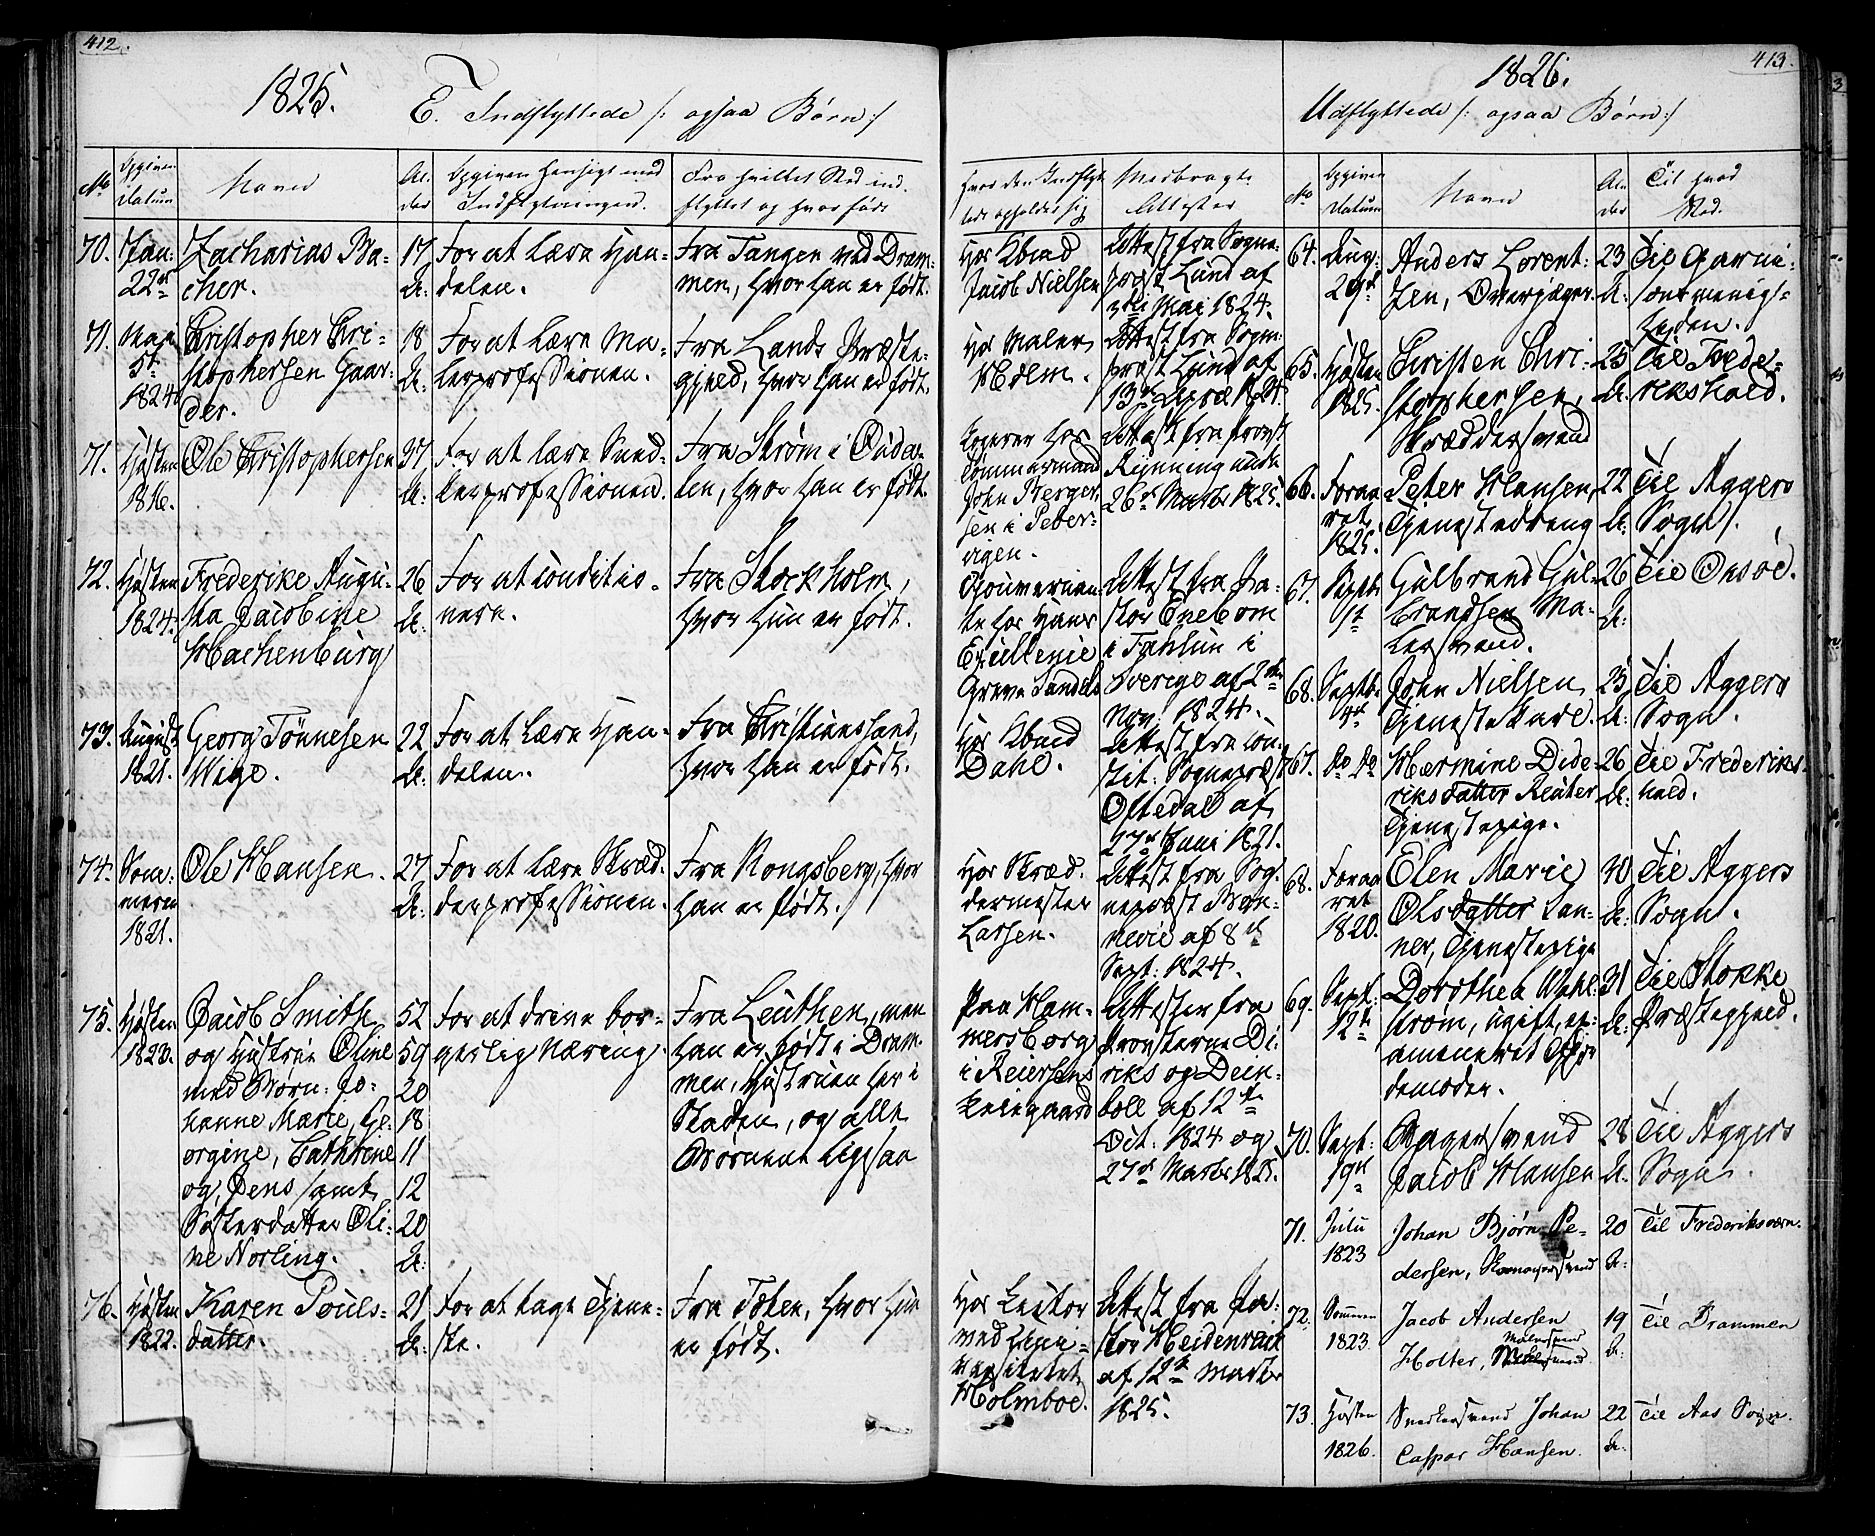 412.
1825.
E. Indflyttede /: ogsaa Børn :/
No
Opgiven Datum
Navn
Alder
Opgiven Hensigt med Indflytningen.
Fra hvilket Sted indflyttet og hvor født
Hvor den Indflyttede opholder sig
Medbragte Attester
70.
Jan: 22de
Zacharias Bacher.
17 A:
For at lære Handelen.
Fra Tangen ved Drammen, hvor han er født.
Hos Kbmd Jacob Nielsen
Attest fra Sogneprest Lund af Mai 1824.
71.
Maji 5t 1824
Christopher Christophersen Gaarder.
18 A:
For at lære Malerprofessionen.
Fra Lands Præstegjeld, hvor han er født.
Hos Maler Holm.
Attest fra Sogneprest Lund af 13de 1824.
71.
Høsten 1816.
Ole Christophersen
37 A:
For at lære Snedkerprofessionen.
Fra Strøm i Oudalen, hvor han er født.
Logerer hos Tømmermand John Bergersen i Pebervigen.
Attest fra Provst Rynning 26de Marts 1825.
72.
Høsten 1824.
Frederike Augusta Jacobine Hachenburg
26 A:
For at conditionere.
Fra Stockholm, hvor hun er født.
Gouvernante hos Hans Excellence Greve Sandels
Attest fra Pastor Enebom i Fahlun i Sverige af 2den Nov: 1824.
73.
August 1821.
Georg Tönnesen Wige.
22 A:
For at lære Handelen.
Fra Christianssand, hvor han er født.
Hos Kbmd Dahl.
Attest fra const: Sogneprest Oftedal af 27de Juni 1821.
74.
Sommeren 1821.
Ole Hansen.
27 A:
For at lære Skrædderprofessionen.
Fra Kongsberg, hvor han er født.
Hos Skræddermester Larsen.
Attest fra Sogneprest Bonnevie af 8de Sept: 1824.
75.
Høsten 1823.
Jacob Smith og Hustrue Oline med Børn: Johanne Marie, Georgine, Cathrine og Jens samt Søsterdatter Oline Norling.
52
59
20
18
11
12
20 A:
For at drive borgerlig Næring.
Fra Leuthen, men han er født i Drammen, Hustruen her i Staden, og alle Børnene ligesaa
Paa Hammersborg i Reiersens Leiegaard
Attester fra Provsterne Diriks og Deinboll af 12te Oct: 1824 og 27de Marts 1825.
76.
Høsten 1822.
Karen Poulsdatter.
21 A:
For at tage Tjeneste.
Fra Toten, hvor hun er født.
Hos Lector ved Universitetet Holmboe.
Attest fra Pastor Heidenreich af 12te Marts 1825.
413.
1826.
Udflyttede /: ogsaa Børn :/
No
Opgiven Datum
Navn
Alder
Til hvad Sted.
64.
Aug: 29de
Anders Lorentzen, Overjæger.
23 A:
Til Garnisonsmenigheden.
65.
Høsten 1825.
Christen Christophersen, Skræddersvend
25 A:
Til Frederikshald.
66.
Foraaret 1825.
Peter Hansen, Tjenestedreng
22 A:
Til Aggers Sogn.
67.
Septbr 1st
Gulbrand Gulbrandsen Malersvend.
26 A:
Til Onsöe.
68.
Septbr 4de
John Nielsen Tjenestekarl.
25 A:
Til Aggers Sogn.
67.
do do
Hermine Dideriksdatter Reuter Tjenestepige.
26 A:
Til Frederikshald.
68.
Foraaret 1820.
Elen Marie Olsdatter Lanner, Tjenestepige
40 A:
Til Aggers Sogn.
69.
Sept: 12te
Dorothea Wahlstrøm, ugift, examineret Gjordemoder.
31 A:
Til Stokke Præstegjeld.
70.
Sept: 19de
Bagersvend Jacob Hansen
28 A:
Til Aggers Sogn.
71.
Juli 1823
Johan Bjørn Pedersen, Skomagersvend
20 A:
Til Frederiksværn.
72.
Sommeren 1823.
Jacob Andersen Holter, Malersvend
19 A:
Til Drammen
73.
Høsten 1826.
Snedkersvend Johan Casper Hansen.
22 A:
Til Aas Sogn.